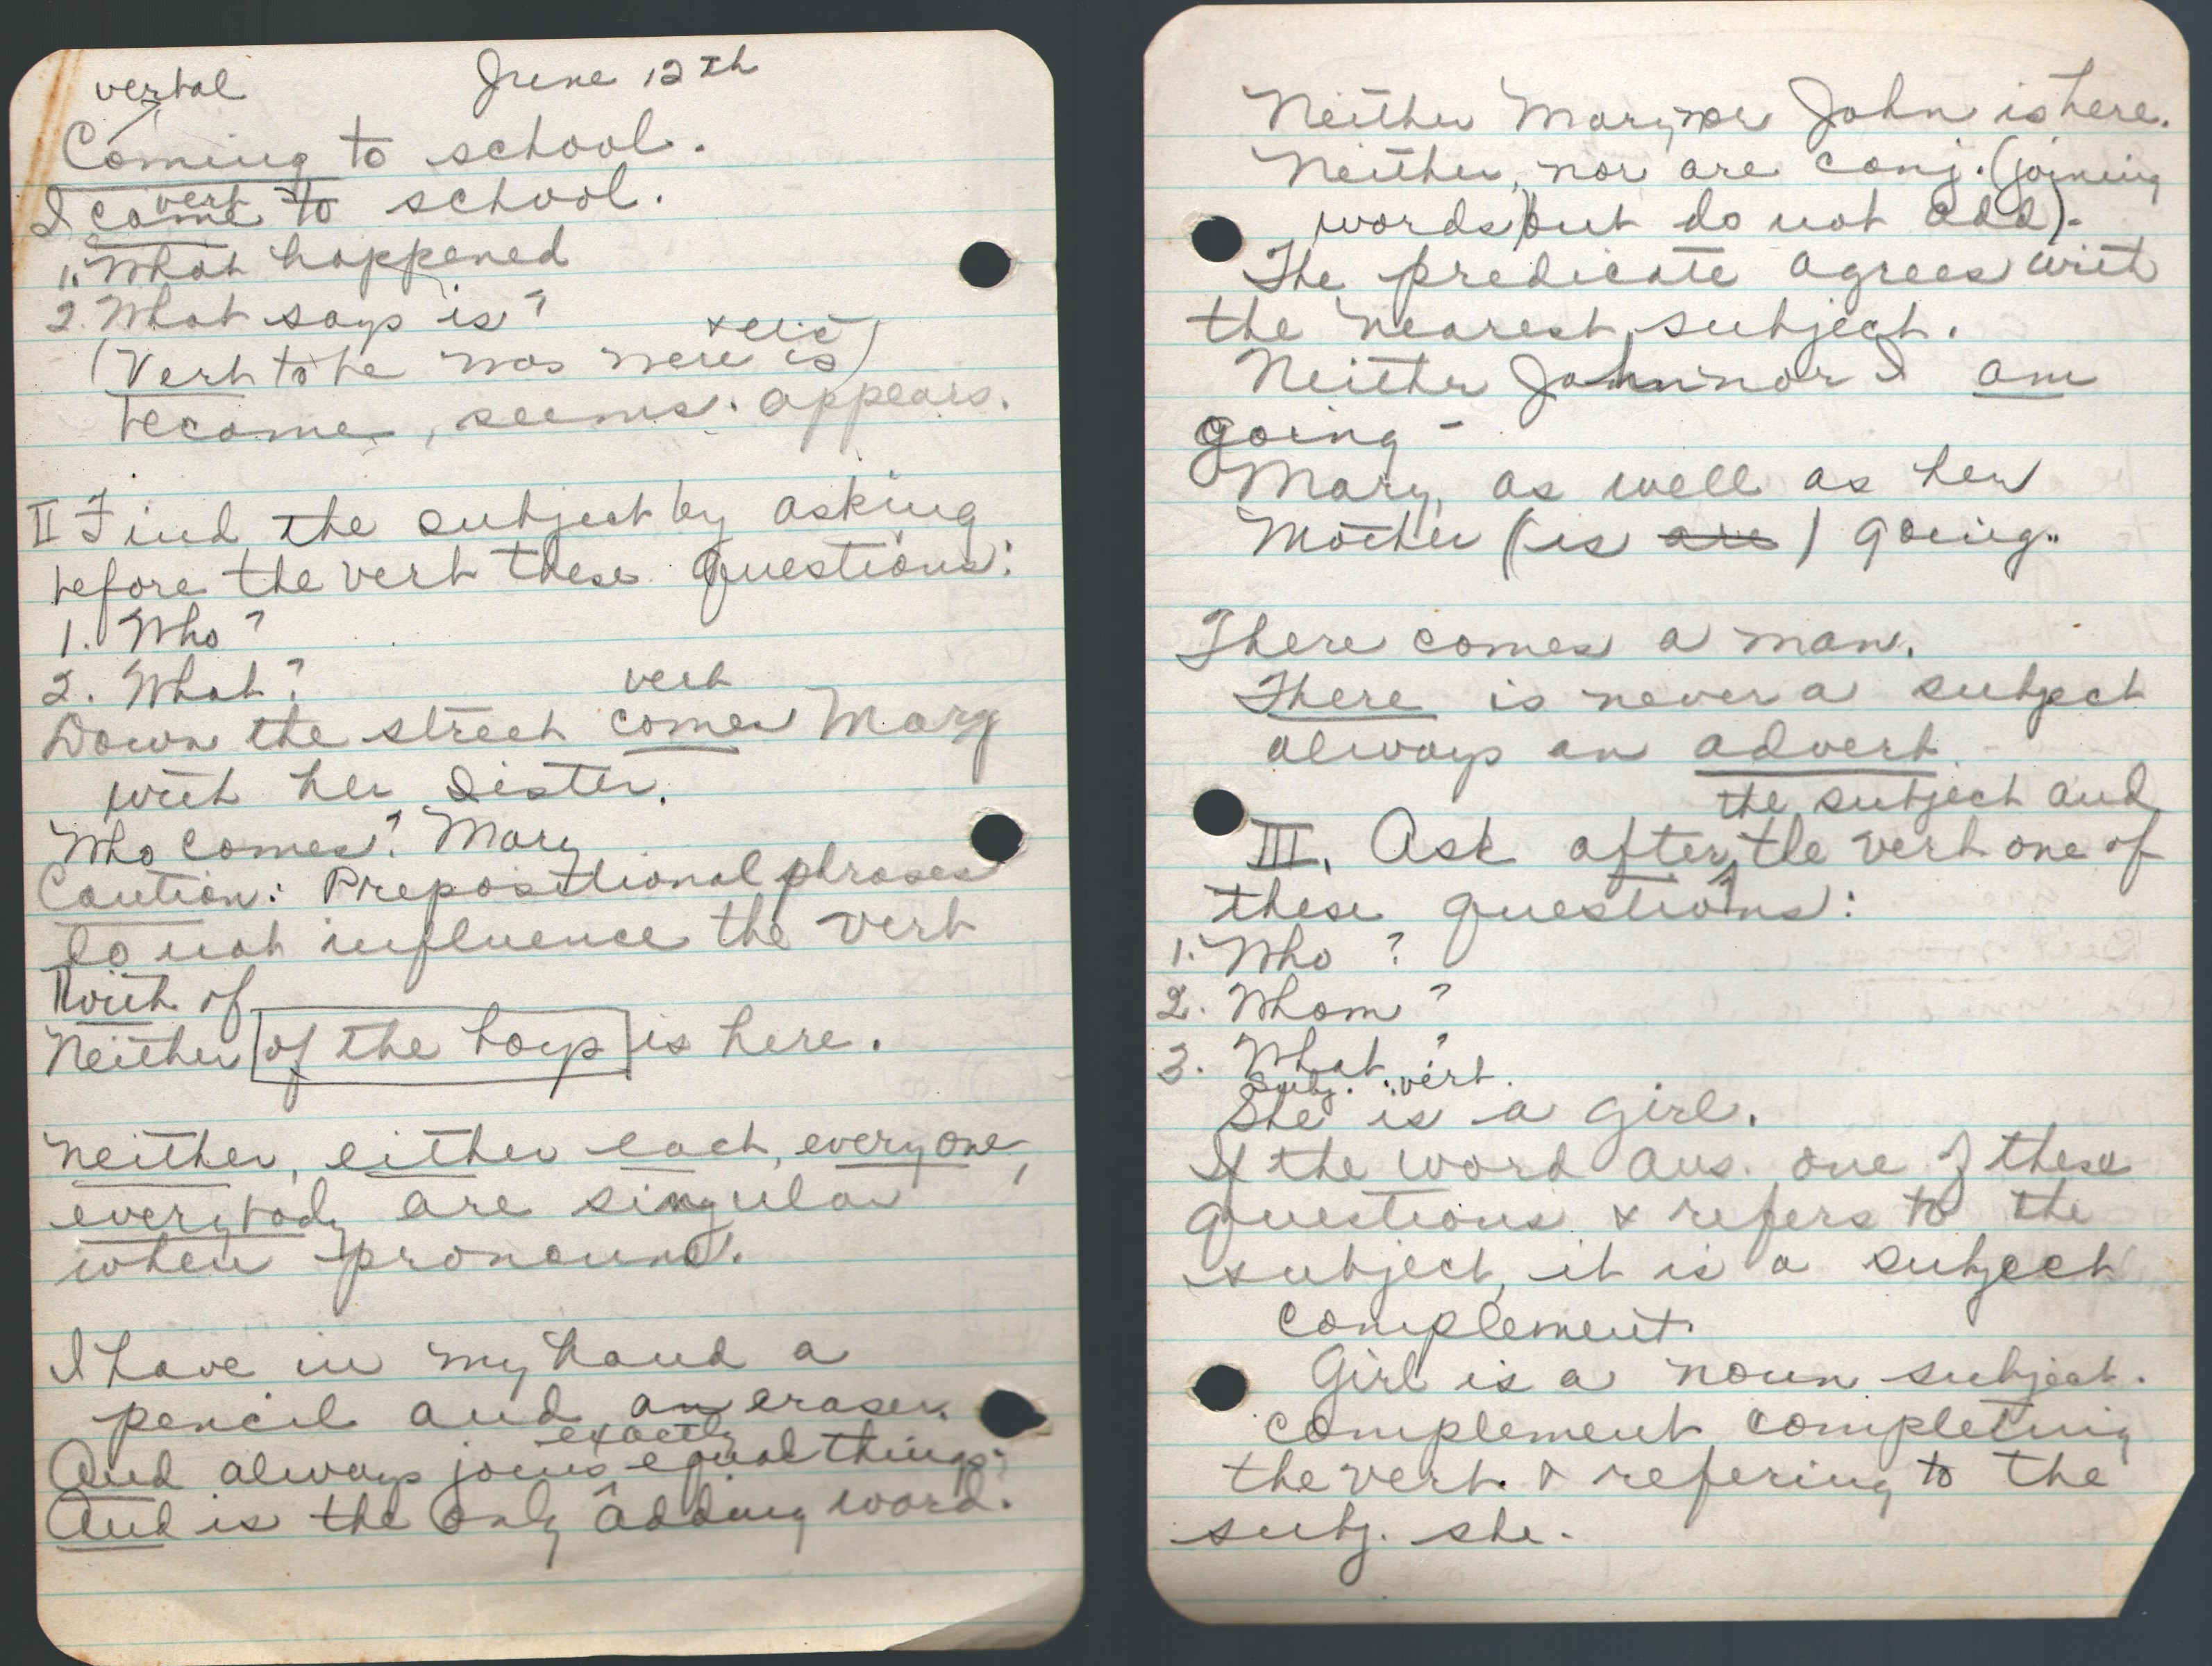 verbal June 12th
Coming to school.
verb
I came to school.
1. What happened
2. What says is?
(Verb to be was were is)
become, seems. appears.
II Find the subject by asking
before the verb these questions:
1. Who?
2. What?
verb
Down the street comes Mary
with her sister.
Who comes? Mary
Caution: Prepositional phrases
do not influence the verb
with of
Neither of the boys is here.
Neither, either each, everyone,
everybody are singular
when pronouns.
I have in my hand a
pencil and an eraser.
exactly
And always joins equal things.
And is the only adding word.
Neither Mary nor John is here.
Neither, nor are conj. (joining
words) but do not add).
The predicate agrees with
the nearest subject.
Neither John nor I am
going -
Mary, as well as her
Mother (is are) going.
There comes a man.
There is never a subject
always an adverb.
the subject and
III. Ask after the verb one of
these questions:
1. Who?
2. Whom?
3. What?
Subj. verb.
She is a girl.
If the word ans. one of these
questions & refers to the
subject, it is a subject
complement.
Girl is a noun subject.
complement completing
the verb. & refering to the
subj. she.